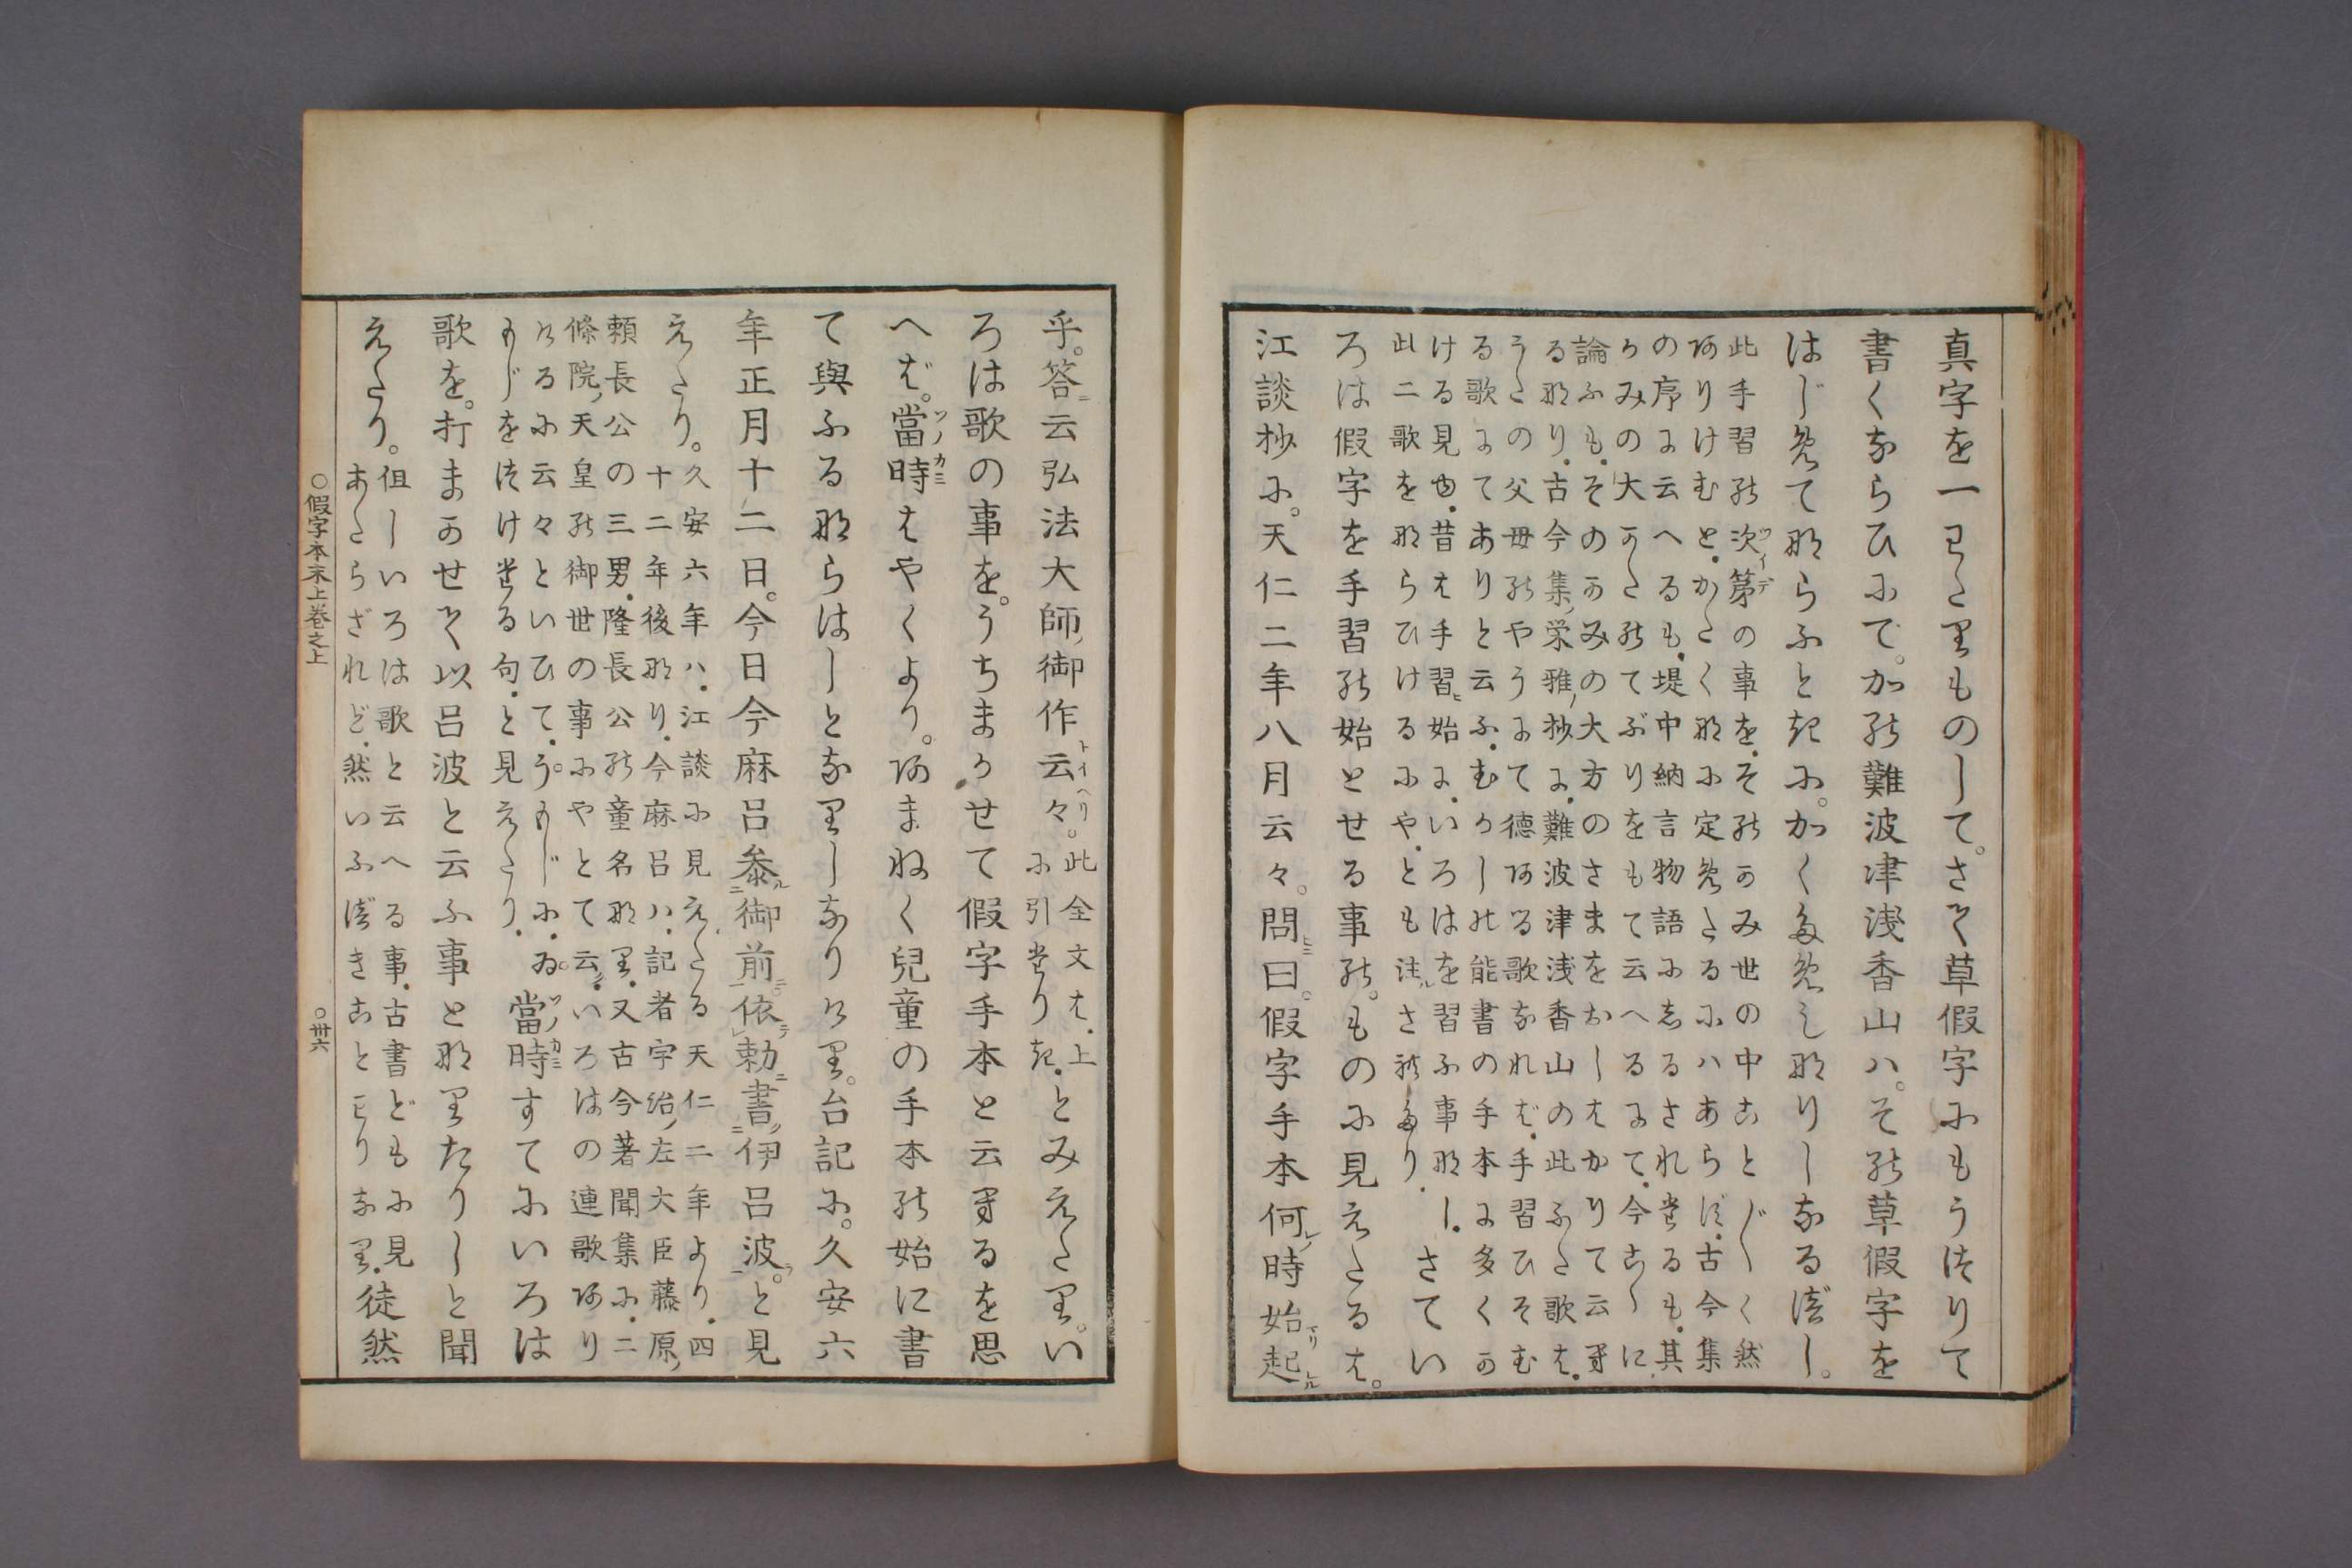 真字を一わたりものして。さて草假字にもうつりて
書くならひにて。かの難波津淺香山ハ。その草假字を
はじめて習らふときに。かくためしなりしなるべし。
此手習の次第の事を。そのかみ世の中にことごとく然
ありけむと。かたく那に定めたるにハあらず。古今集
の序に云へるも。堤中納言物語にしるされたるも。其
かみの大かたのてぶりをもて云へるにて。今こゝに
論ふも。そのかみの大方のさまをおしはかりて云す
る那り。古今集栄雅抄に。難波津淺香山の此ふた歌は。
うたの父母のやうにて徳ある歌なれば。手習ひそむ
る歌にてありと云ふ。むかしの能書の手本に多くか
ける見ゆ。昔は手習始に。いろはを習ふ事那し。
此二歌を那らひけるにや。とも注されたり。さてい
ろは假字を手習の始とせる事の。ものに見えたるは。
江談抄に。天仁二年八月云々。問曰。假字手本何時始起
乎。答云弘法大師御作云々。此全文は。上に引たりき。とみえたり。い
ろは歌の事を。うちまかせて假字手本と云するを思
へば。當時はやくより。あまねく兒童の手本の始に書
て與ふる那らはしとなりしなりけり。台記に。久安六
年正月十二日。今日今麻呂參御前依勅書伊呂波。と見
えたり。久安六年ハ。江談に見えたる天仁二年より。四
十二年後那り。今麻呂ハ。記者宇治左大臣藤原
頼長公の三男。隆長公の童名那り。又古今著聞集に。二
條院天皇の御世の事にやとて云。いろはの連歌あり
けるに云々といひて。うもじに。ゐ
もじをつけたる句。と見えたり。當時すでにいろは
歌を。打まかせて以呂波と云ふ事と那りたりしと聞
えたり。但しいろは歌と云へる事。古書どもに見
あたらざれど。然いふべきことわりなり。徒然
○假字本末上巻之上 ○卅六